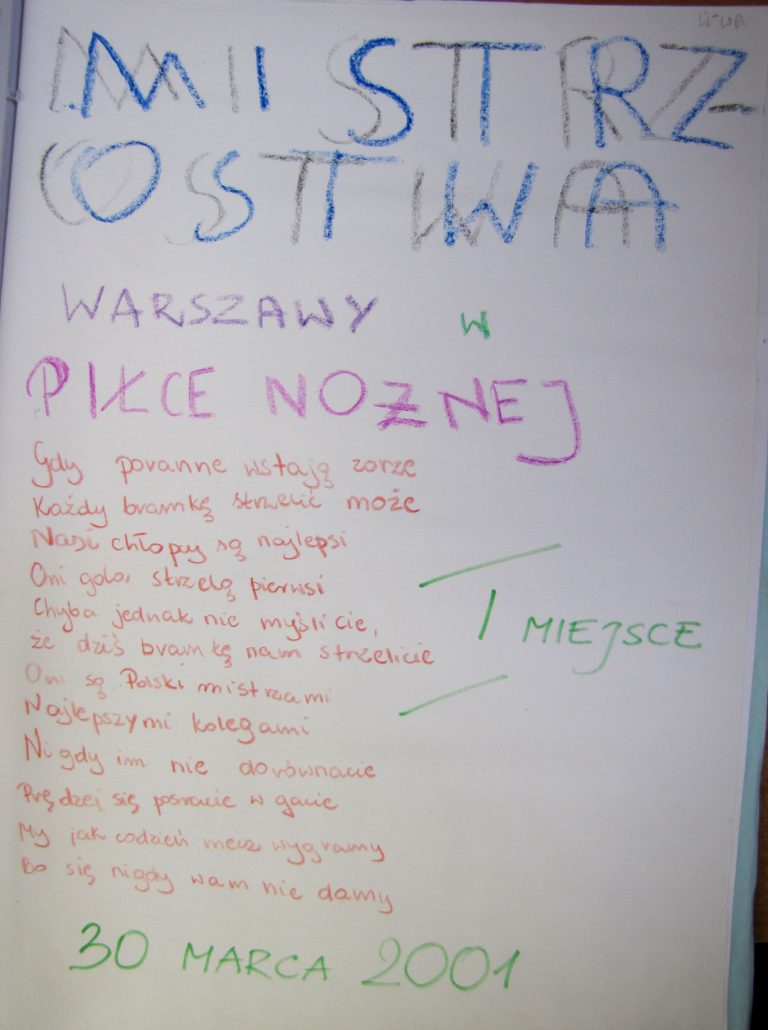 W-WA
MISTRZ-
OSTWA
WARSZAWY W
PIŁCE NOZNEJ
Gdy poranne wstają zorze
Każdy bramkę strzelić może
Nasi chłopcy są najlepsi
Oni gola strzelą pierwsi
Chyba jednak nie myślicie,
że dziś bramkę nam strzelicie
I MIEJSCE
Oni są Polski mistrzami
Najlepszymi kolegami
Nigdy im nie dorównacie
Prędzej się posracie w gacie
My jak codzień mecz wygramy
Bo się nigdy wam nie damy
30 MARCA 2001